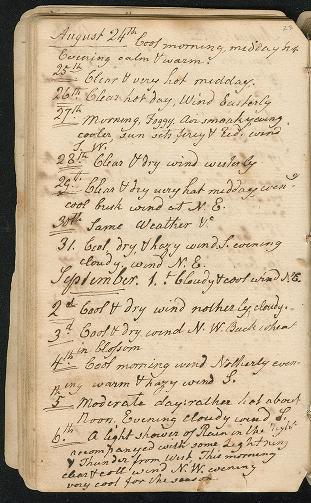 August 24th Cool morning, midday hot
Evening calm & warm.
25th Clear & very hot midday.
26th Clear hot day, Wind Easterly
27th Morning, Foggy. Air smoky evening
cooler sun sets, firey & Red, wind
S. W.
28th Clear & dry wind westerly
29th Clear & dry very hot midday even
cool brisk wind at N. E.
30th Same Weather &c
31. Cool, dry & hazy wind S. evening
cloudy, wind N. E.
September. 1.t Cloudy & cool wind N.E.
2d Cool & dry wind notherly cloudy.
3d Cool & dry wind N. W. Buck wheat
in blossom
4th Cool morning wind Notherly even-
ing warm & hazy wind S.
5th Moderate day rather hot about
Noon, Evening cloudy wind S.
6th A light shower of Rain in the night
accompanyed with some Lightning
& Thunder from West This morning
clear & cool wind N. W. evening
very cool for the season